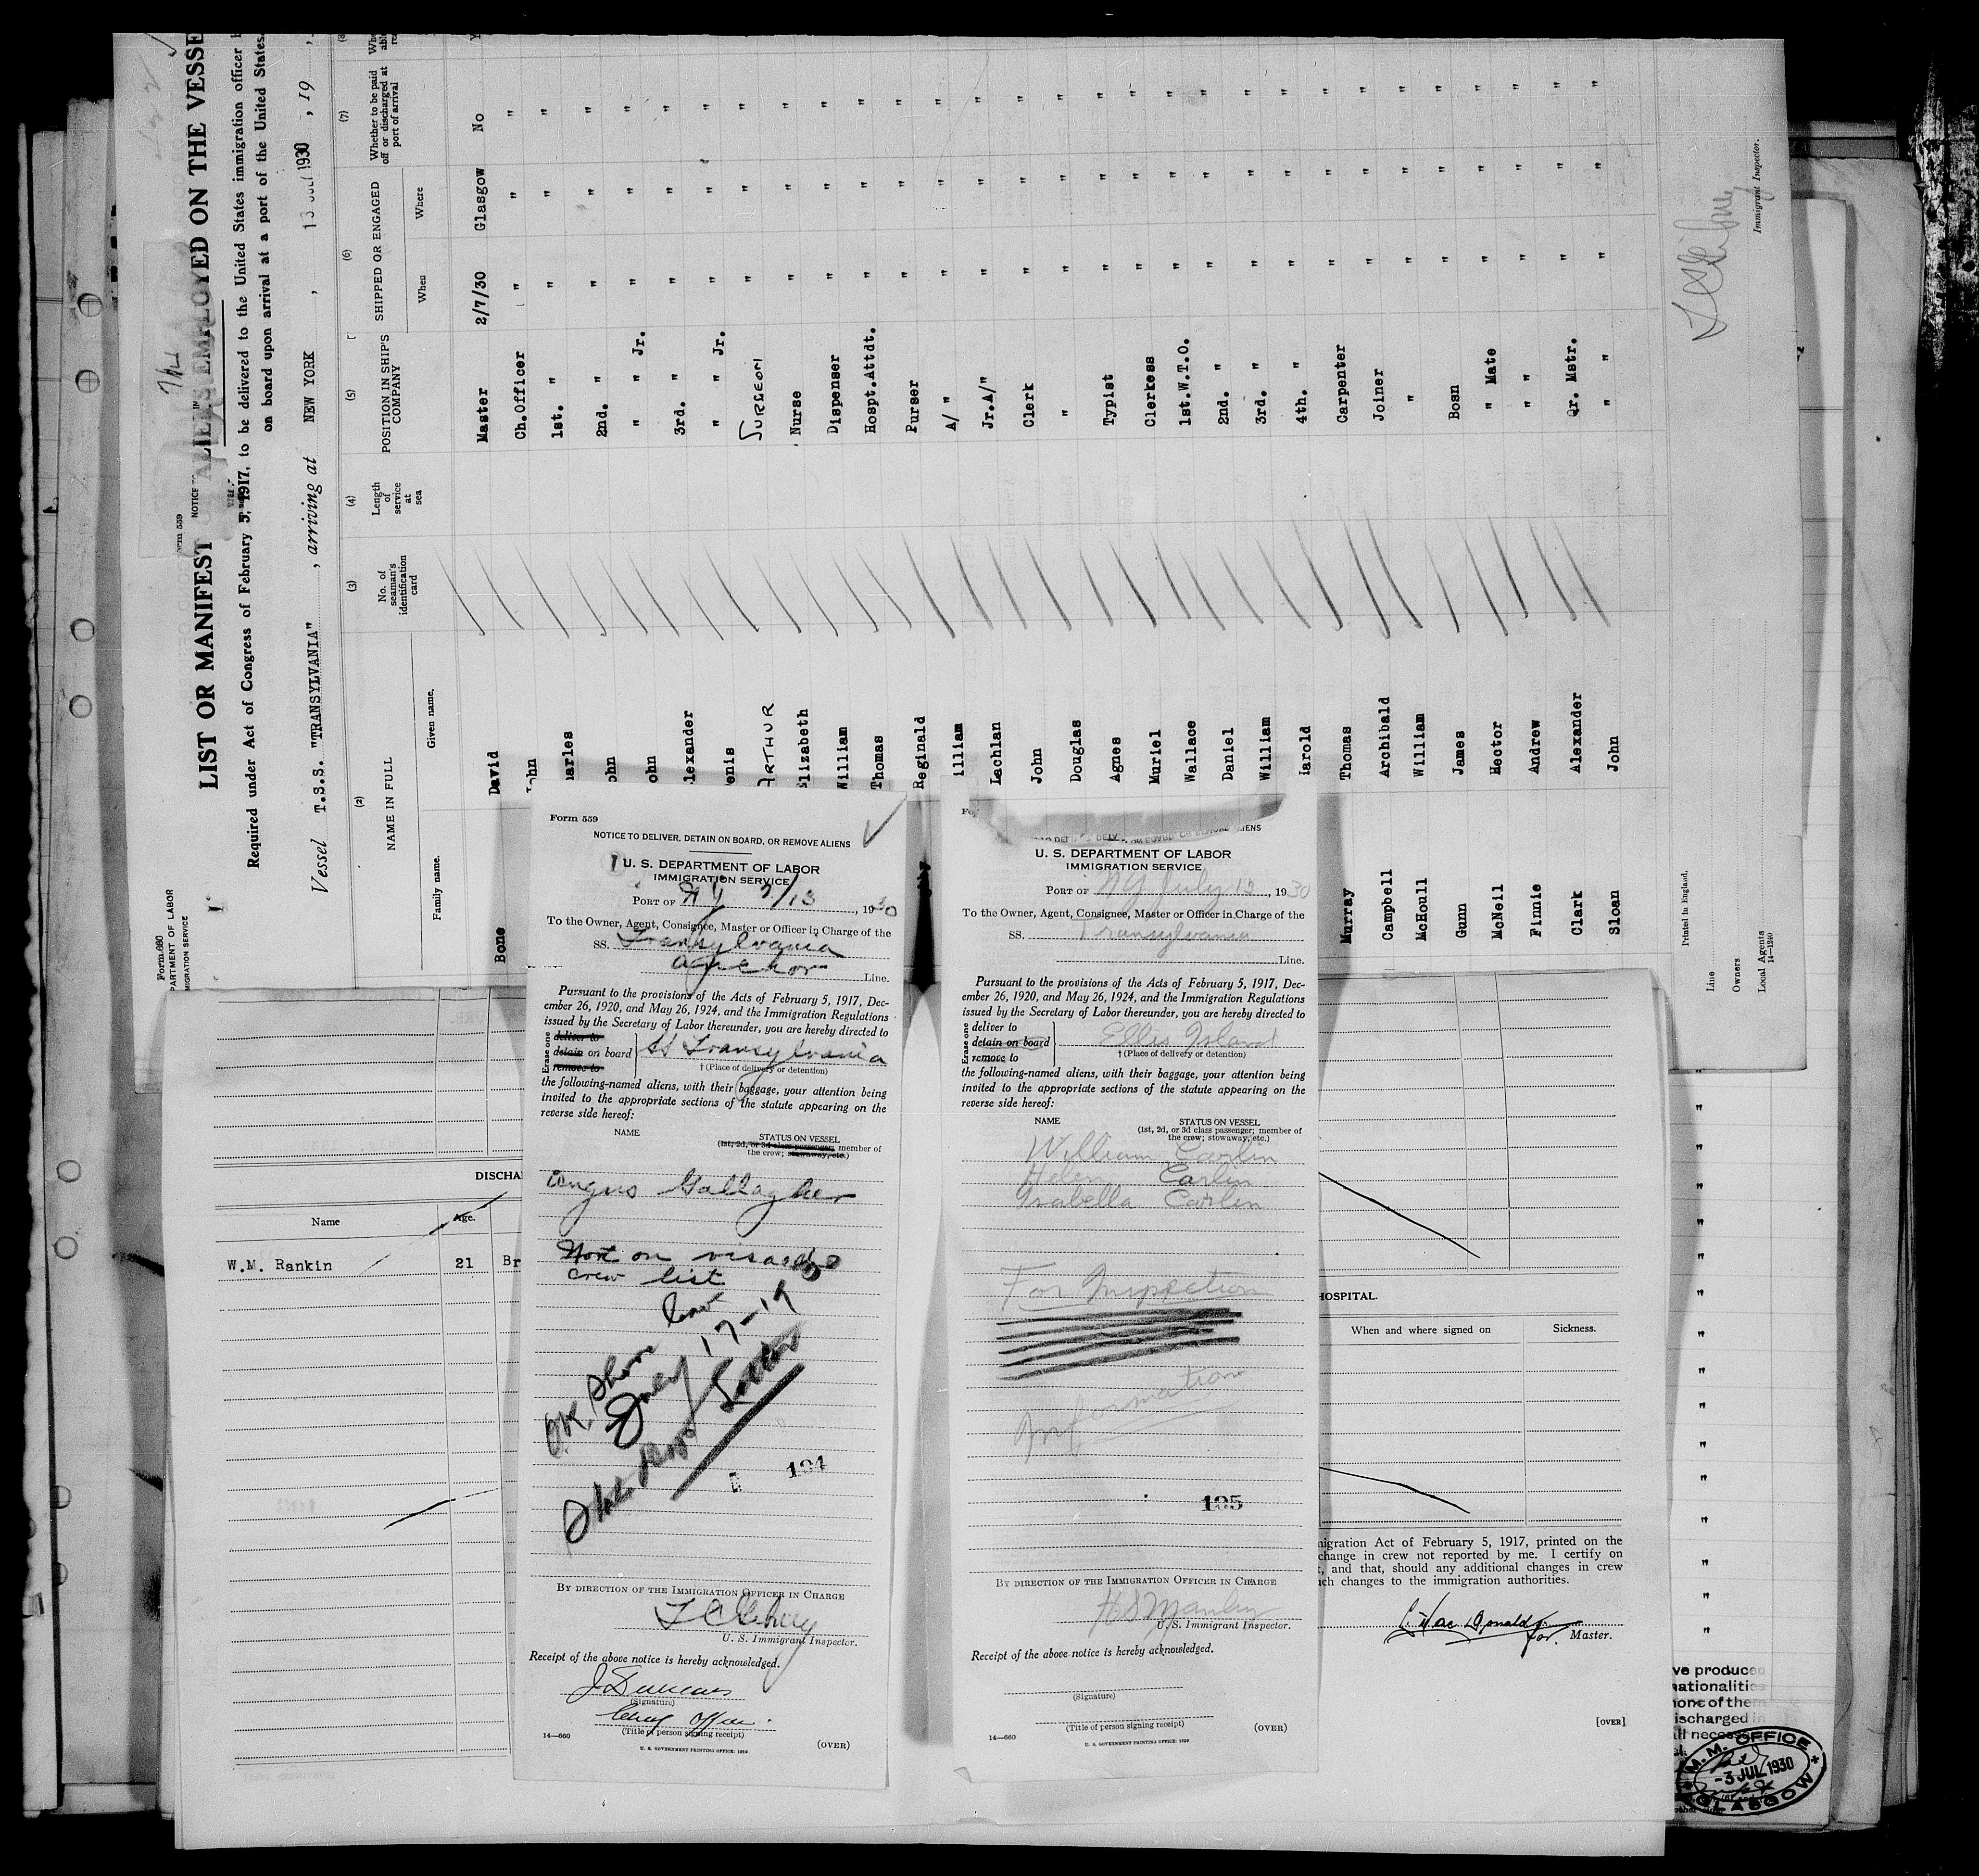 Form 680
PARTMENT OF LABOR
MIGRATION SERVICE
LIST OR MANIFEST
NOTICE
ALIENS EMPLOYED ON THE VESSE
Required under Act of Congress of February 5, 1917, to be delivered to the United States immigration officer
on board upon arrival at a port of the United States.
Vessel T.S.S. "TRANSYLVANIA", arriving at NEW YORK, 13 JUL 1930, 19
(2) (3) (4) (5) (6) (7) (8)
NAME IN FULL
Family name. Given name.
No. of seaman's identification card
Length of service at sea
POSITION IN SHIP'S COMPANY
SHIPPED OR ENGAGED
When Where
Whether to be paid off or discharged at port of arrival
Bone David Master 2/7/30 Glasgow No
Ch.Officer " " "
arles 1st. " " " "
ohn 2nd. " " " "
ohn " " Jr. " " "
lexander 3rd. " " " "
enis " " Jr. " " "
ARTHUR SURGEON " " "
Elizabeth Nurse " " "
William Dispenser " " "
Thomas Hospt.Attdt. " " "
Reginald Purser " " "
illiam A/ " " " "
Lachlan Jr.A/" " " "
John Clerk " " "
Douglas " " " "
Agnes Typist " " "
Muriel Clerkess " " "
Wallace 1st.W.T.O. " " "
Daniel 2nd. " " " "
William 3rd. " " " "
Harold 4th. " " " "
Murray Thomas Carpenter " " "
Campbell Archibald Joiner " " "
McHoull William " " " "
Gunn James Bosn " " "
McNeil Hector " Mate " " "
Finnie Andrew " " " " "
Clark Alexander Qr. Mstr. " " "
Sloan John " " " " "
Printed in England.
Line
Owners
Local Agents
14—1240
Immigrant Inspector.
Form 559
NOTICE TO DELIVER, DETAIN ON BOARD, OR REMOVE ALIENS
U. S. DEPARTMENT OF LABOR
IMMIGRATION SERVICE
PORT OF N Y 7/13, 1930
To the Owner, Agent, Consignee, Master or Officer in Charge of the
SS. Transylvania
Anchor Line.
Pursuant to the provisions of the Acts of February 5, 1917, Dec-
ember 26, 1920, and May 26, 1924, and the Immigration Regulations
issued by the Secretary of Labor thereunder, you are hereby directed to
Erase one
deliver to
detain on board SS Transylvania
remove to
† (Place of delivery or detention)
the following-named aliens, with their baggage, your attention being
invited to the appropriate sections of the statute appearing on the
reverse side hereof:
NAME STATUS ON VESSEL
(1st, 2d, or 3d class passenger; member of
the crew; stowaway, etc.)
Angus Gallagher
Not on visaed
crew list
OK Shore leave
July 17-19
194
BY DIRECTION OF THE IMMIGRATION OFFICER IN CHARGE
U. S. Immigrant Inspector.
Receipt of the above notice is hereby acknowledged.
J Duncan
(Signature)
Chief Officer
(Title of person signing receipt)
14—660
U. S. GOVERNMENT PRINTING OFFICE: 1929
(OVER)
U. S. DEPARTMENT OF LABOR
IMMIGRATION SERVICE
PORT OF N Y July 13, 1930
To the Owner, Agent, Consignee, Master or Officer in Charge of the
SS. Transylvania
Line.
Pursuant to the provisions of the Acts of February 5, 1917, Dec-
ember 26, 1920, and May 26, 1924, and the Immigration Regulations
issued by the Secretary of Labor thereunder, you are hereby directed to
Erase one
deliver to
detain on board Ellis Island
remove to
† (Place of delivery or detention)
the following-named aliens, with their baggage, your attention being
invited to the appropriate sections of the statute appearing on the
reverse side hereof:
NAME STATUS ON VESSEL
(1st, 2d, or 3d class passenger; member of
the crew; stowaway, etc.)
William Carlin
Helen Carlin
Isabella Carlin
For Inspection
Information
195
BY DIRECTION OF THE IMMIGRATION OFFICER IN CHARGE
H S Manley
U. S. Immigrant Inspector.
Receipt of the above notice is hereby acknowledged.
(Signature)
(Title of person signing receipt)
14—660
U. S. GOVERNMENT PRINTING OFFICE: 1929
(OVER)
DISCHA
Name Age.
W.M. Rankin 21 Br
HOSPITAL.
When and where signed on Sickness.
migration Act of February 5, 1917, printed on the
change in crew not reported by me. I certify on
, and that, should any additional changes in crew
ch changes to the immigration authorities.
MacDonald
for. Master.
[OVER]
ve produced
nationalitie
none of them
ischarged in
ll necess
M.M. OFFICE
-3 JUL 1930
GLASGOW